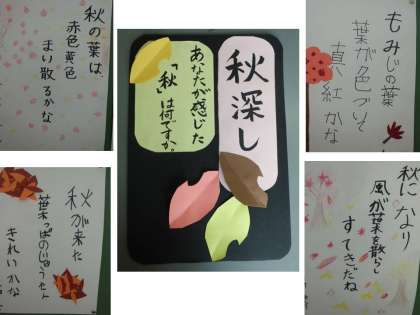 秋の葉は、
赤色黄色
まい散るかな
秋深し
あなたが感じた
「秋」は何ですか。
もみじの葉
葉が色づいて
真紅かな
秋が来た
葉っぱのじゅうたん
きれいかな
秋になり
風が葉を散らし
すてきだね